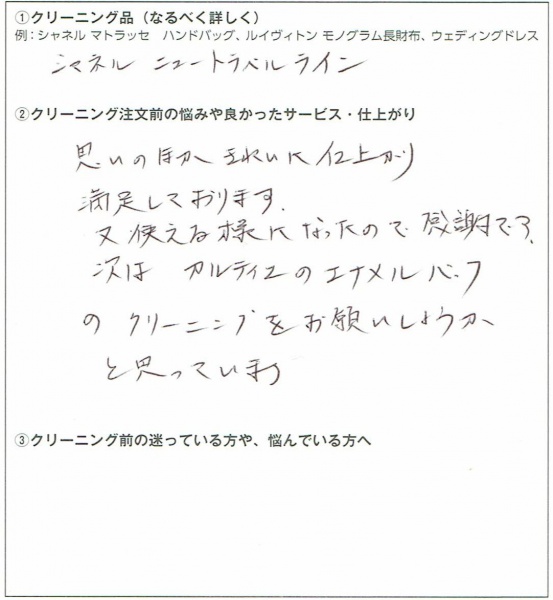 ①クリーニング品（なるべく詳しく）
例：シャネル マトラッセ　ハンドバッグ、ルイヴィトン モノグラム長財布、ウェディングドレス
シャネル ニュートラベルライン
②クリーニング注文前の悩みや良かったサービス・仕上がり
思いのほか きれいに仕上がり
満足しております.
又使える様になったので 感謝です,
次は カルティエのエナメルバッグ
の クリーニングをお願いしようか
と思っています
③クリーニング前の迷っている方や、悩んでいる方へ